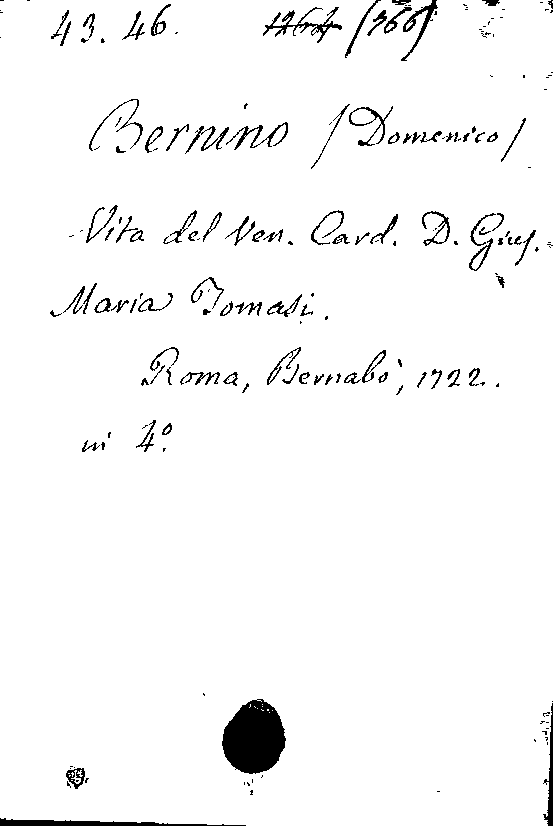 43. 46. 1264 (366)
Bernino (Domenico)
Vita del Ven. Card. D. Gius.
Maria Tomasi.
Roma, Bernabò, 1722.
in 4º.